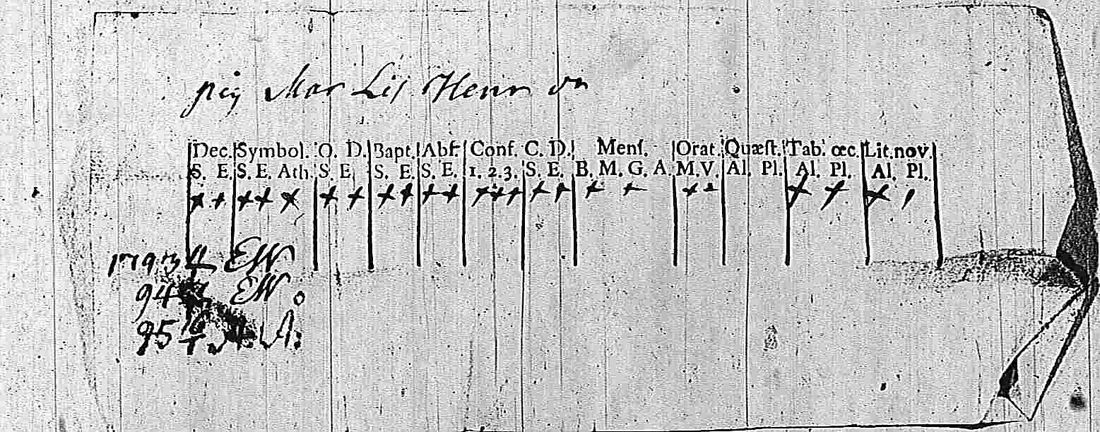 pig Mar Lis Henr dr
Dec. Symbol. O. D. Bapt. Abſ. Conf. C. D. Menſ. Orat. Quæſt. Tab. œc. Lit. nov.
S. E. S. E. Ath. S. E. S. E. S. E. 1. 2. 3. S. E. B. M. G. A. M. V. Al. Pl. Al. Pl. Al. Pl.
1793 EW
94 EW.
95 A: